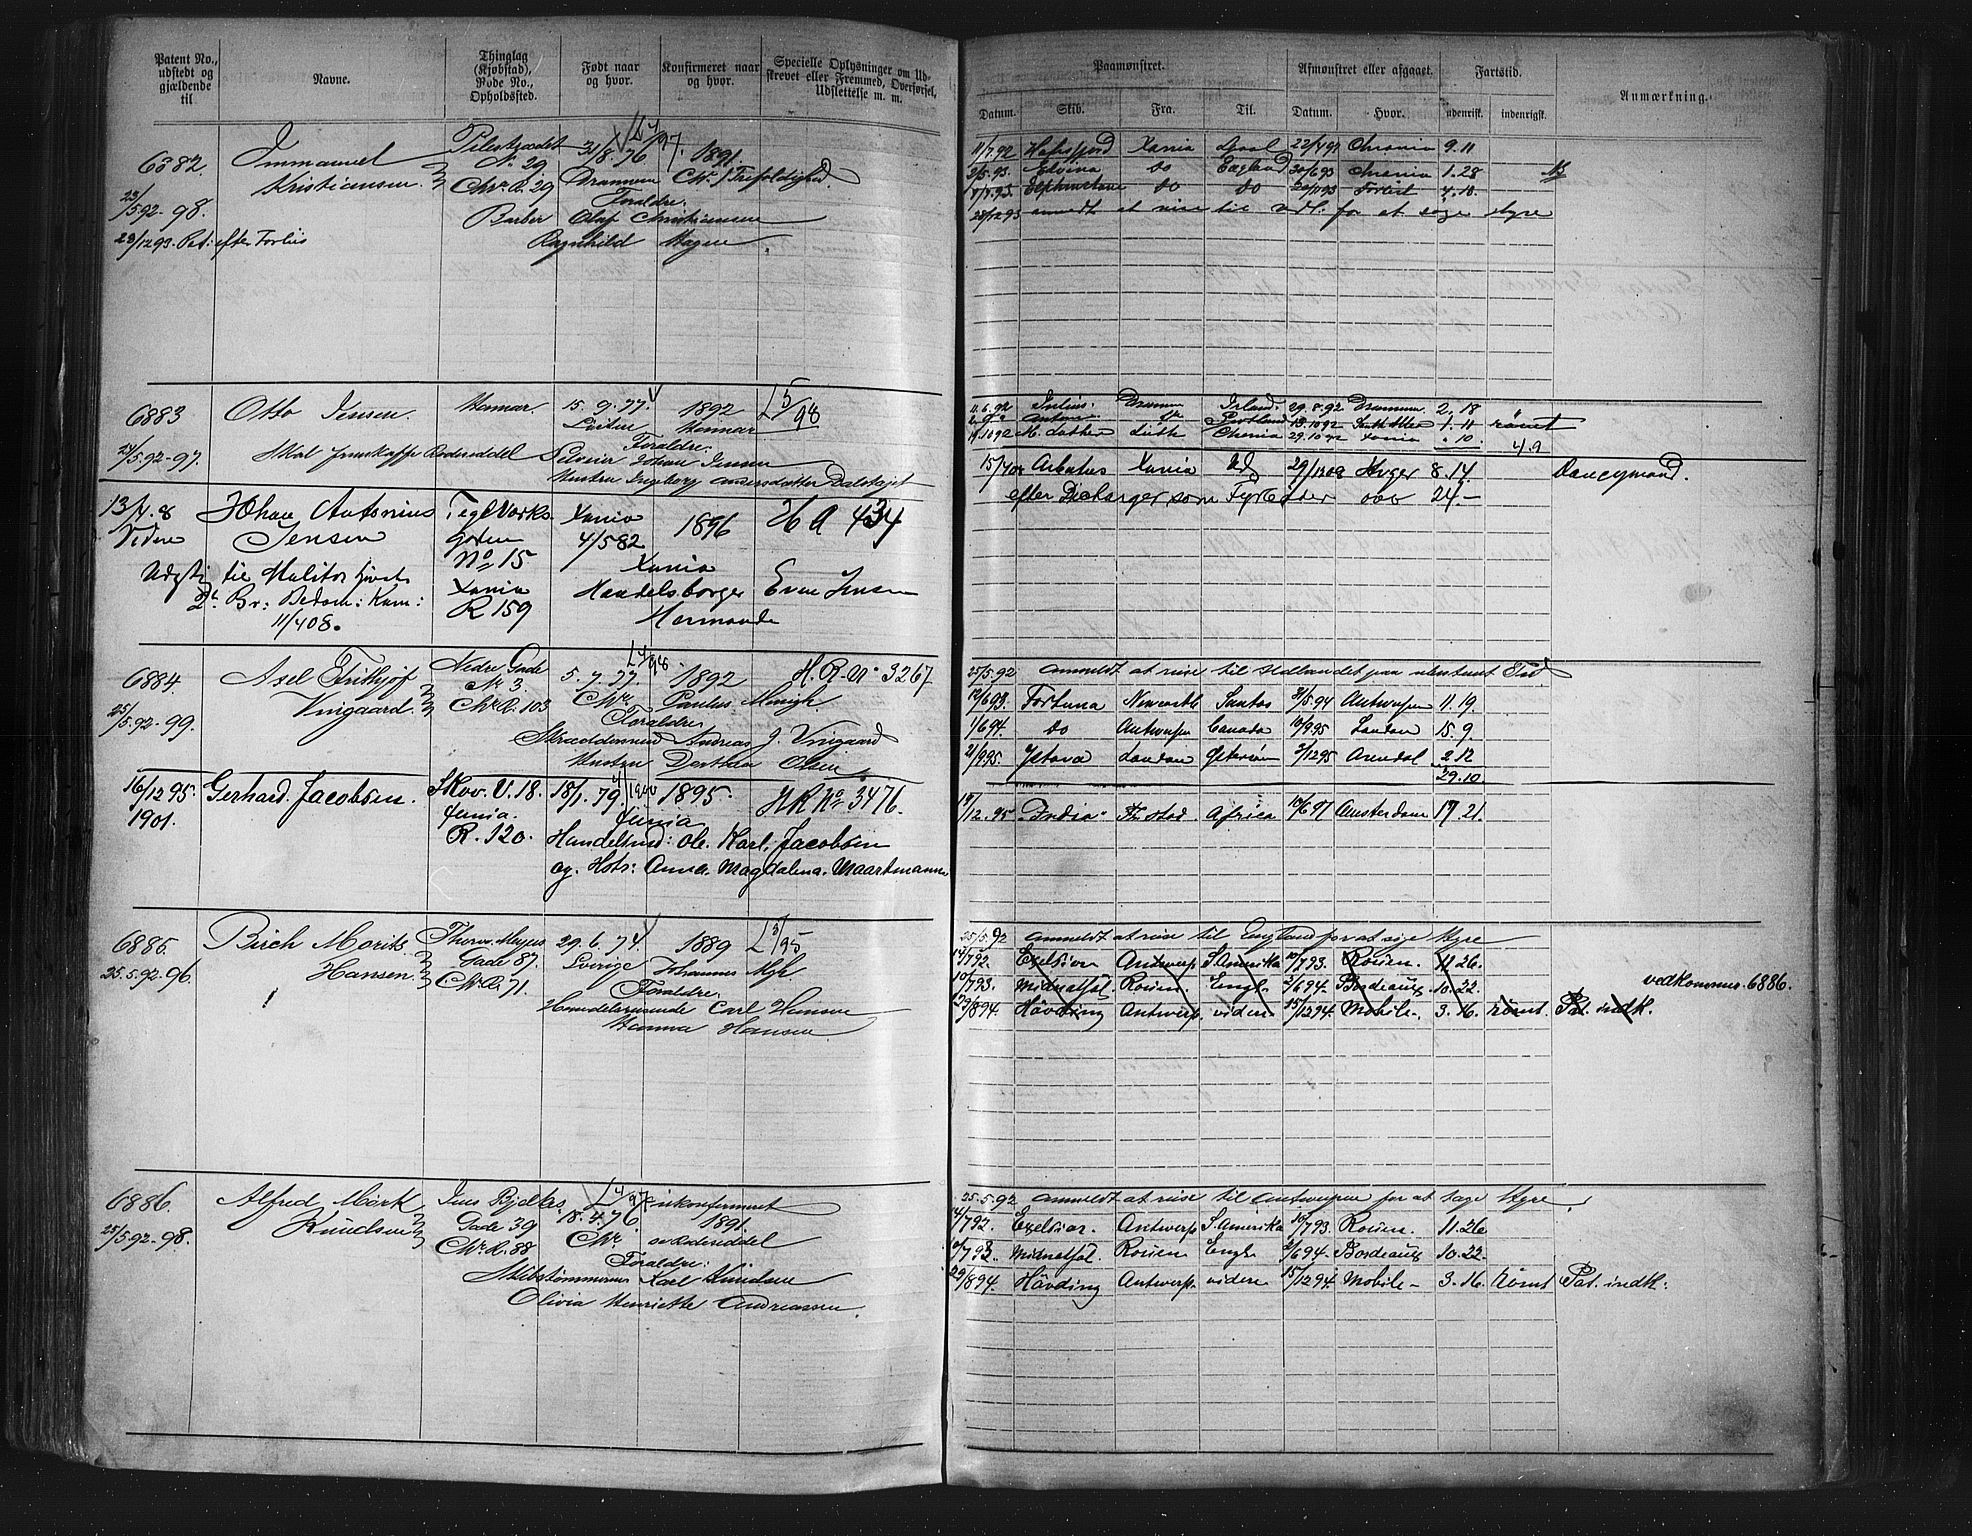 Patent No., udstedt og gjældende til
Navne.
Thinglag (Kjøbstad), Rode No., Opholdssted.
Født naar og hvor.
Konfirmeret naar og hvor.
Specielle Oplysninger om Udskrevet eller Fremmed, Overførsel, Udslettelse m. m.
Paamønstret.
Afmønstret eller afgaaet.
Fartstid.
Anmærkning.
Datum. Skib. Fra. Til. Datum. Hvor. udenrigsk. indenrigsk.
6882. Immanuel Pilestrædet 31/8.76 1891.
Kristiansen No. 29 Drammen Chr. / Trefoldighed.
23/5.92-98. Chr. R. 29 Foraldre.
Barber Olaf Christiansen
23/12 93. Pat: efter Forliis Ragnhild Hagen.
11/7.92 Xania 22/4 93 Chrania 9.11
2/5.93. Elvina Do England 30/6 93 Chrania 1.28
Do Do Forlist 4.18.
28/12 93 anmeldt at reise til udl: for at søge Hyre
6883 Otto Jensen. Hamar. 15. 9. 77. 1892 L 5/98
Løiten Hamar
24/5.92-97. Skal fremskaffe Rodeseddel Foraldre.
Johan Jensen
Hustru Ingeborg Andersdatter
11.6.92 Julius Drammen Irland. 29.8.92 Drammen 2.18
1.11 rømt
19.10 92 Leith Chrania 29.10 92 Xania " 10.
4.9
13/4.8 Johan Antonius Teglverks Xania 1896 H A 434
Videre Jensen Gaden 4/5 82
No 15 Xania
Udygtig til Militær tjeneste Xania Handelsborger Even Jensen
Br: Bedøm: Kom: R. 159 Normande
11/4 08.
15/4 08 Arbutus Xania Ud 29/12 08 8.14. Donkeymand.
efter Discharger som Fyrbøder 24.—
6884. Axel Frithjof Nedre Gade 5. 7. 77 1892 H. R. No 3267
Viigaard. No. 3. Chr. Paulus Menigh
25/5.92-99. Chr. R. 103 Foraldre
Skræddersvend Andreas J. Viigaard
Hustru Dorthea Olsen
25/5.92 anmeldt at reise til Udlandet paa ubestemt Tid
12/6 93. Fortuna Newcastle Santos 31/5.94 Antwerpen 11.19.
1/6 94. Do Antwerpen Canada 10/9 95 London 15. 9.
21/9.95. London 2/12 95 Arendal 2.12
29.10.
16/12 95. Gerhard. Jacobsen. Skov. V. 18. 18/1. 79 1895. H R No 3476.
1901. Xania. Xania
R. 120. Handelsmd: Ole. Karl. Jacobsen
og. Hstr: Anna. Magdalena. Maartmann
19/12. 95 "India" Fr. stad Africa 10/6 97 Amsterdam 17 21.
6885. Birch Morits Thorv. Meyers 29. 6. 74. 1889 L 3/95
Hansen. Gade 87. Sverige Johannes Mgh.
25.5.92-96. Chr. R. 71. Foraldre.
Handelsreisende Carl Hansen
Hanna Hansen
25/5.92 anmeldt at reise til England for at søge Hyre
14/7 92. Excelsior Antwerp S. Amerika 10/7 93. Rouen. 11 26.
10/7 93. Midnatsol. Rouen. Engl. 2/6 94. Bordeaux. 10. 22. vedkommer 6886.
29/8 94. Hövding Antwerp. videre 15/12 94. Mobile. 3. 16. rømt. Pat. indk.
6886. Alfred Mørk Jens Bjelkes L 4/97 ikonfirmeret
Knudsen Gade 39 18. 4. 76. 1891.
25/5.92-98. Chr. R. 88 Chr. Rodeseddel
Foraldre:
Skibstømmermd Karl Knudsen
Olivia Henriette Andreassen.
25.5.92 anmeldt at reise til Antwerpen for at tage Hyre.
14/7 92. Excelsior. Antwerp S. Amerika 10/7 93. Rouen. 11.26
10/7 93. Midnatsol. Rouen Engl. 2/6 94. Bordeaux 10. 22.
29/8 94. Hövding Antwerp. videre 15/12 94. Mobile 3. 16. rømt Pat. indk: